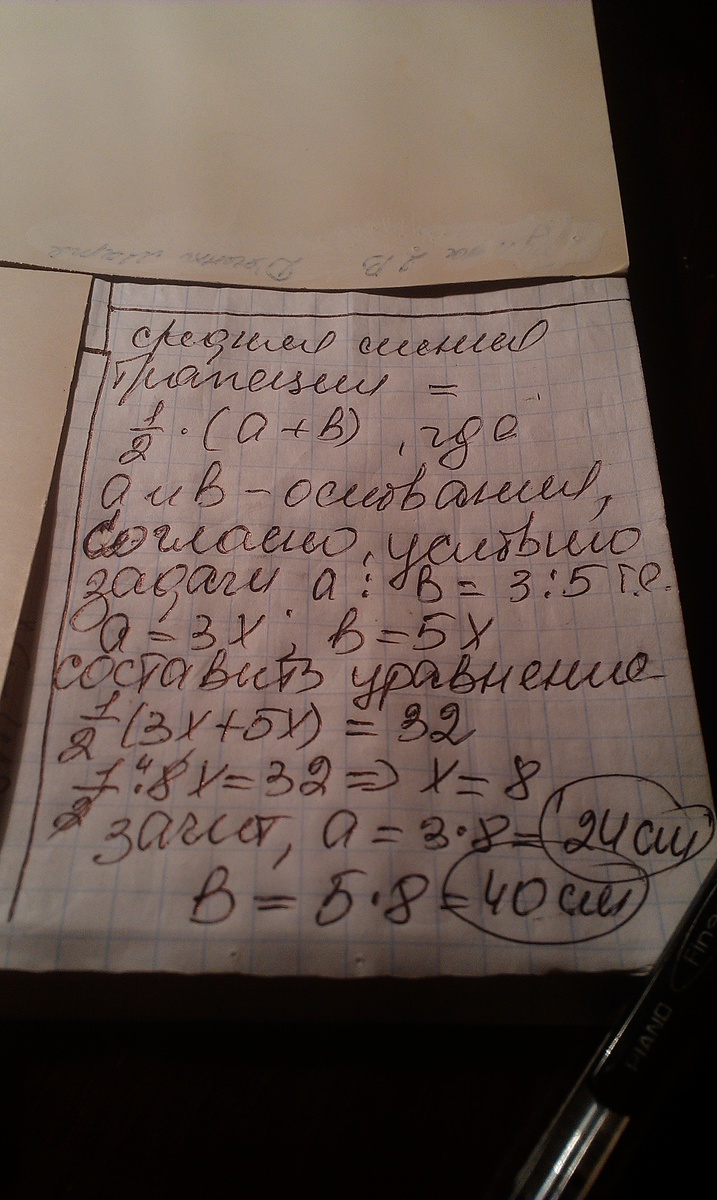 средняя линия
трапеции =
1/2 · (a+b), где
a и b – основания,
согласно условию
задачи a : b = 3:5 т.е.
a = 3x ; b = 5x
составить уравнение
1/2 (3x+5x) = 32
1/2 · 8x = 32 => x = 8
4
значит, a = 3·8 = 24 см
b = 5·8 = 40 см
на 2 В
PIANO
Fine